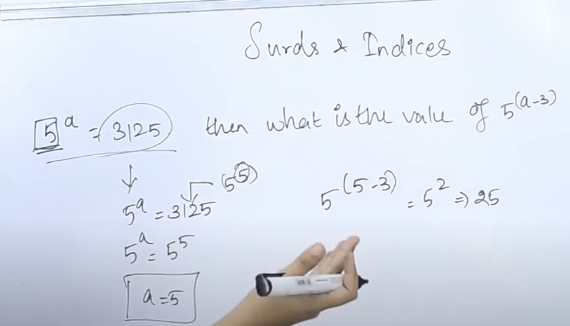 Surds & Indices
5^a = 3125 then what is the value of 5^(a-3)
5^a = 3125 (5^5)
5^a = 5^5
a = 5
5^(5-3) = 5^2 ⇒ 25